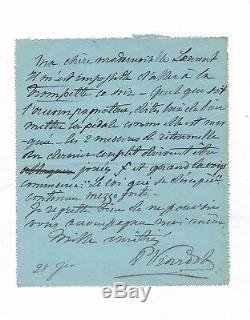 Ma chère mademoiselle Laurent
Il m'est impossible d'aller à la
Trompette ce soir - Quel que soit
l'accompagnateur, dites lui de bien
mettre la pédale comme elle est mar-
quée - les 2 mesures de ritournelle
du dernier couplet doivent être
jouées f et quand la voix
commence: "Le roi qui se désespère"
continue mezzo forte -
Je regrette bien de ne pouvoir
vous accompagner moi-même
Mille amitiés
P Viardot
21